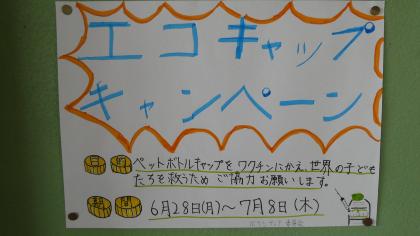 エコキャップ
キャンペーン
目的 ペットボトルキャップを ワクチンにかえ、世界の子ども
たちを救うため ご協力お願いします。
期間 6月28日(月)〜7月8日(木)
ボランティア委員会